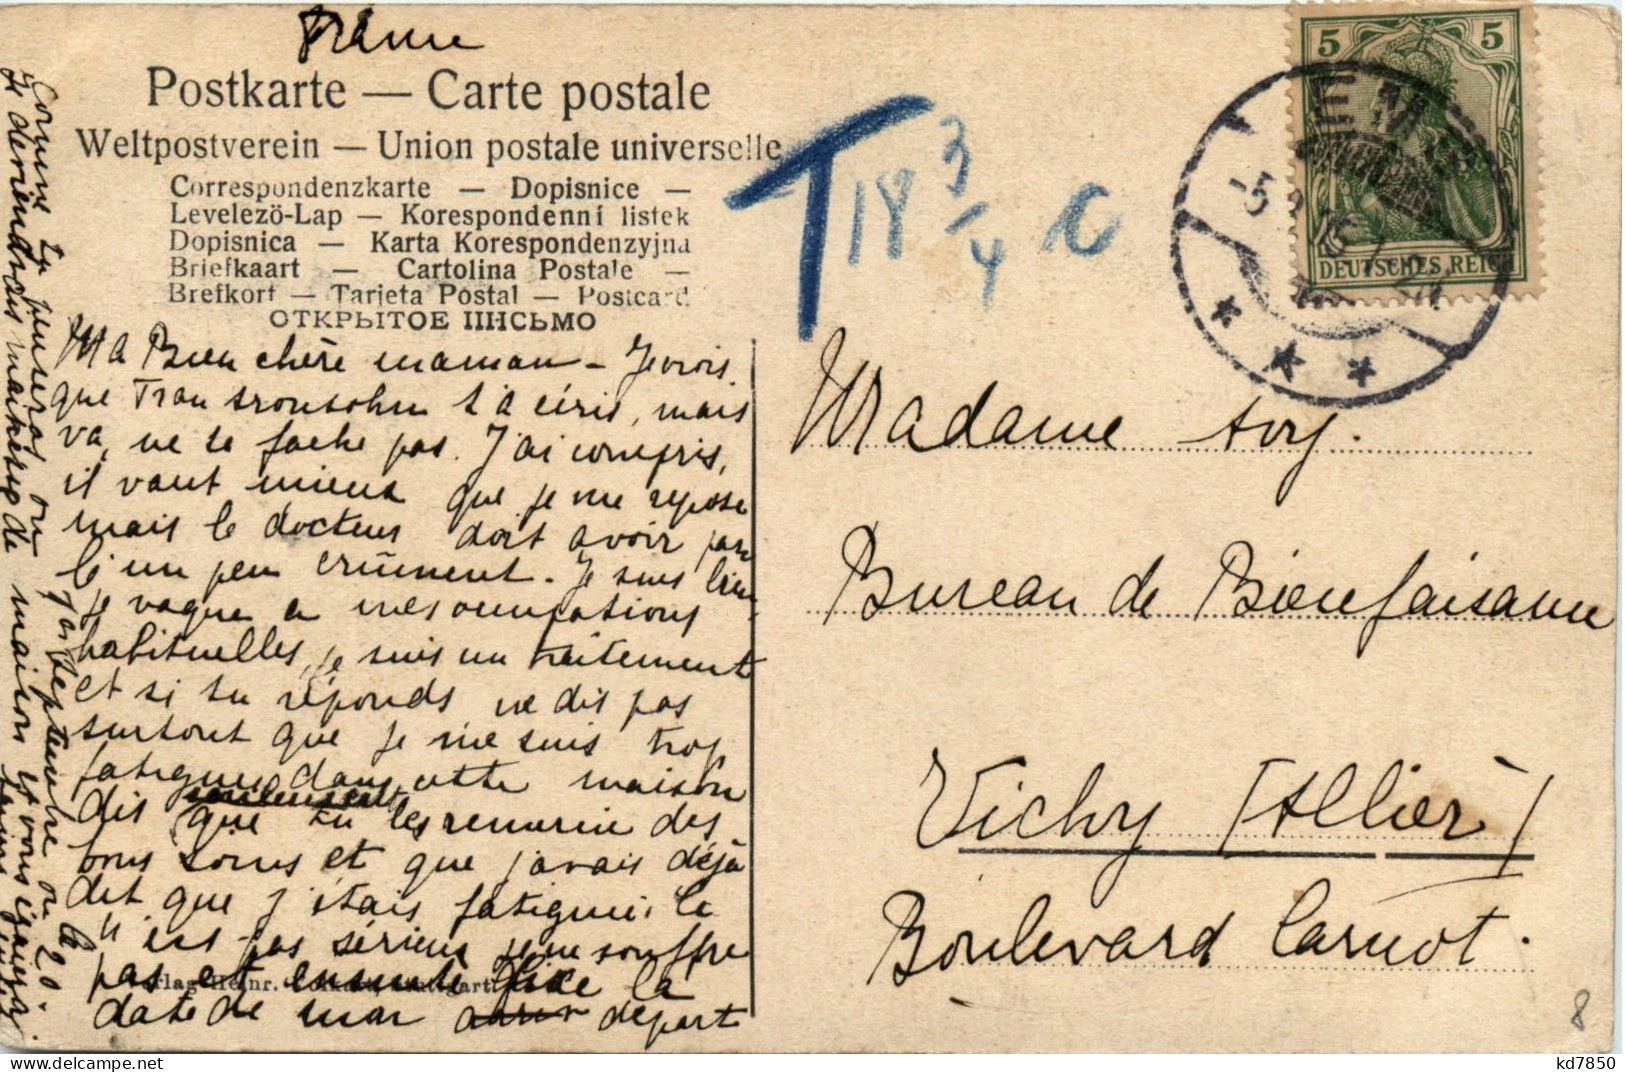 Postkarte — Carte postale
Weltpostverein — Union postale universelle
Correspondenzkarte — Dopisnice —
Levelező-Lap — Korespondenní listek
Dopisnica — Karta Korespondenzyjna
Briefkaart — Cartolina Postale —
Brefkort — Tarjeta Postal — Postcard
ОТКРЫТОЕ ПИСЬМО
5 5
DEUTSCHES REICH
T 18 3/4 c
Ma Bien chère maman - Je vois
que t'a écris, mais
va, ne te fache pas. J'ai compris,
il vaut mieux que je me repose
mais le docteur doit avoir
un peu crûment. Je suis bien
je vaque a mes occupations
habituelles, je suis un traitement
et si tu réponds ne dis pas
surtout que je me suis trop
fatiguée dans cette maison
dis que tu les remercie des
bons soins et que j'avais déjà
dit que j'étais fatiguée. Ce
n'est pas sérieux je ne souffre
pas et ensuite fixe la
date de mon départ
Madame
Bureau de Bienfaisance
Vichy (Allier)
Boulevard Carnot.
8
kd7850